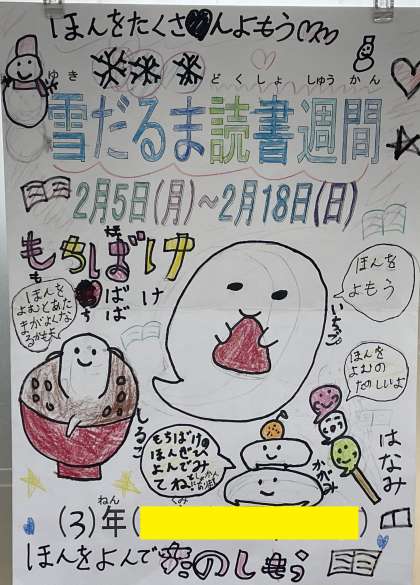 ほんをたくさんよもう
ゆき どくしょ しゅうかん
雪だるま読書週間
2月5日(月)~2月18日(日)
もちばけ
ばば
け
ほんを
よもう
いちご
ほんを
よむのは
たのしいよ
しるこ
もちばけの
ほんぜひ
よんでみ
てね
かがみ
はなみ
ねん くみ
(3)年( )
ほんをよんでたのしもう